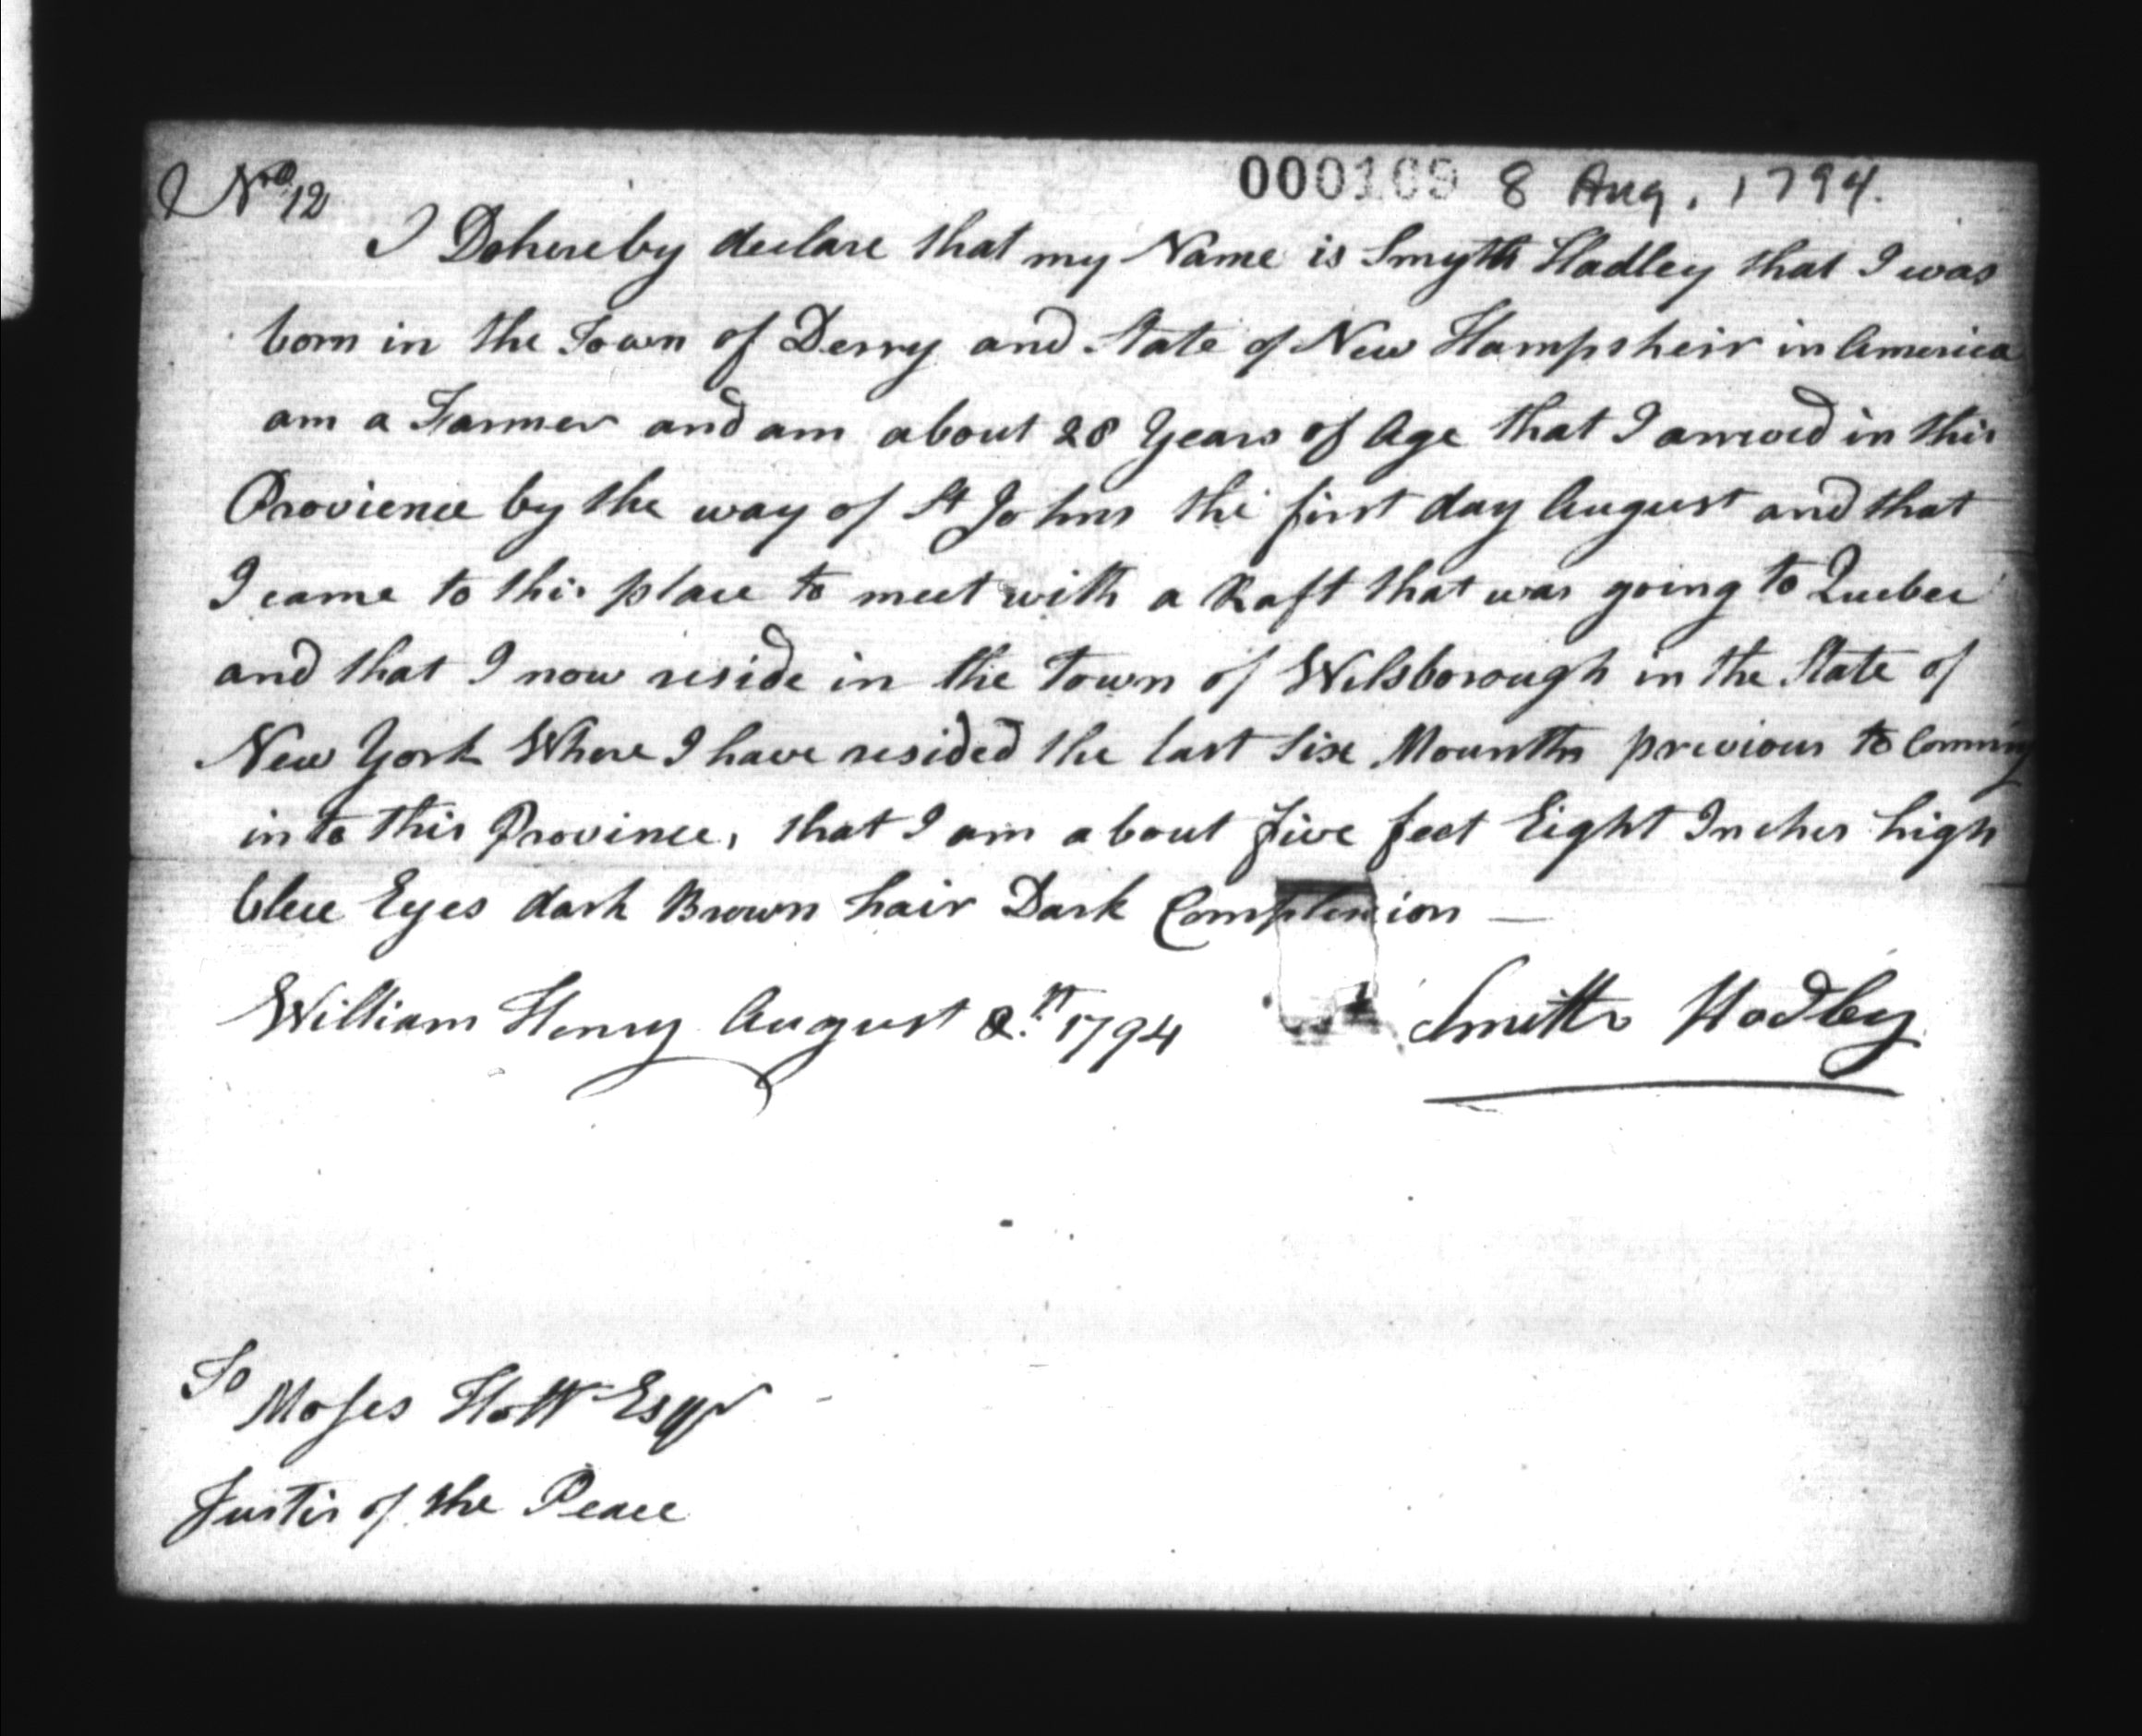 No 12
000109 8 Aug. 1794.
I Do hereby declare that my Name is Smyth Hadley that I was
born in the Town of Derry and State of New Hampsheir in America
am a Farmer and am about 28 Years of Age that I arrived in this
Provience by the way of St Johns the first day August and that
I came to this place to meet with a Raft that was going to Quebec
and that I now reside in the Town of Wilsborough in the State of
New York Where I have resided the last Six Mounths previous to Coming
into this Province, that I am about five feet Eight Inches high
blue Eyes dark Brown hair Dark Complexion —
William Henry August 8th 1794
Smith Hadley
To
Moses Hott Esqr
Justis of the Peace